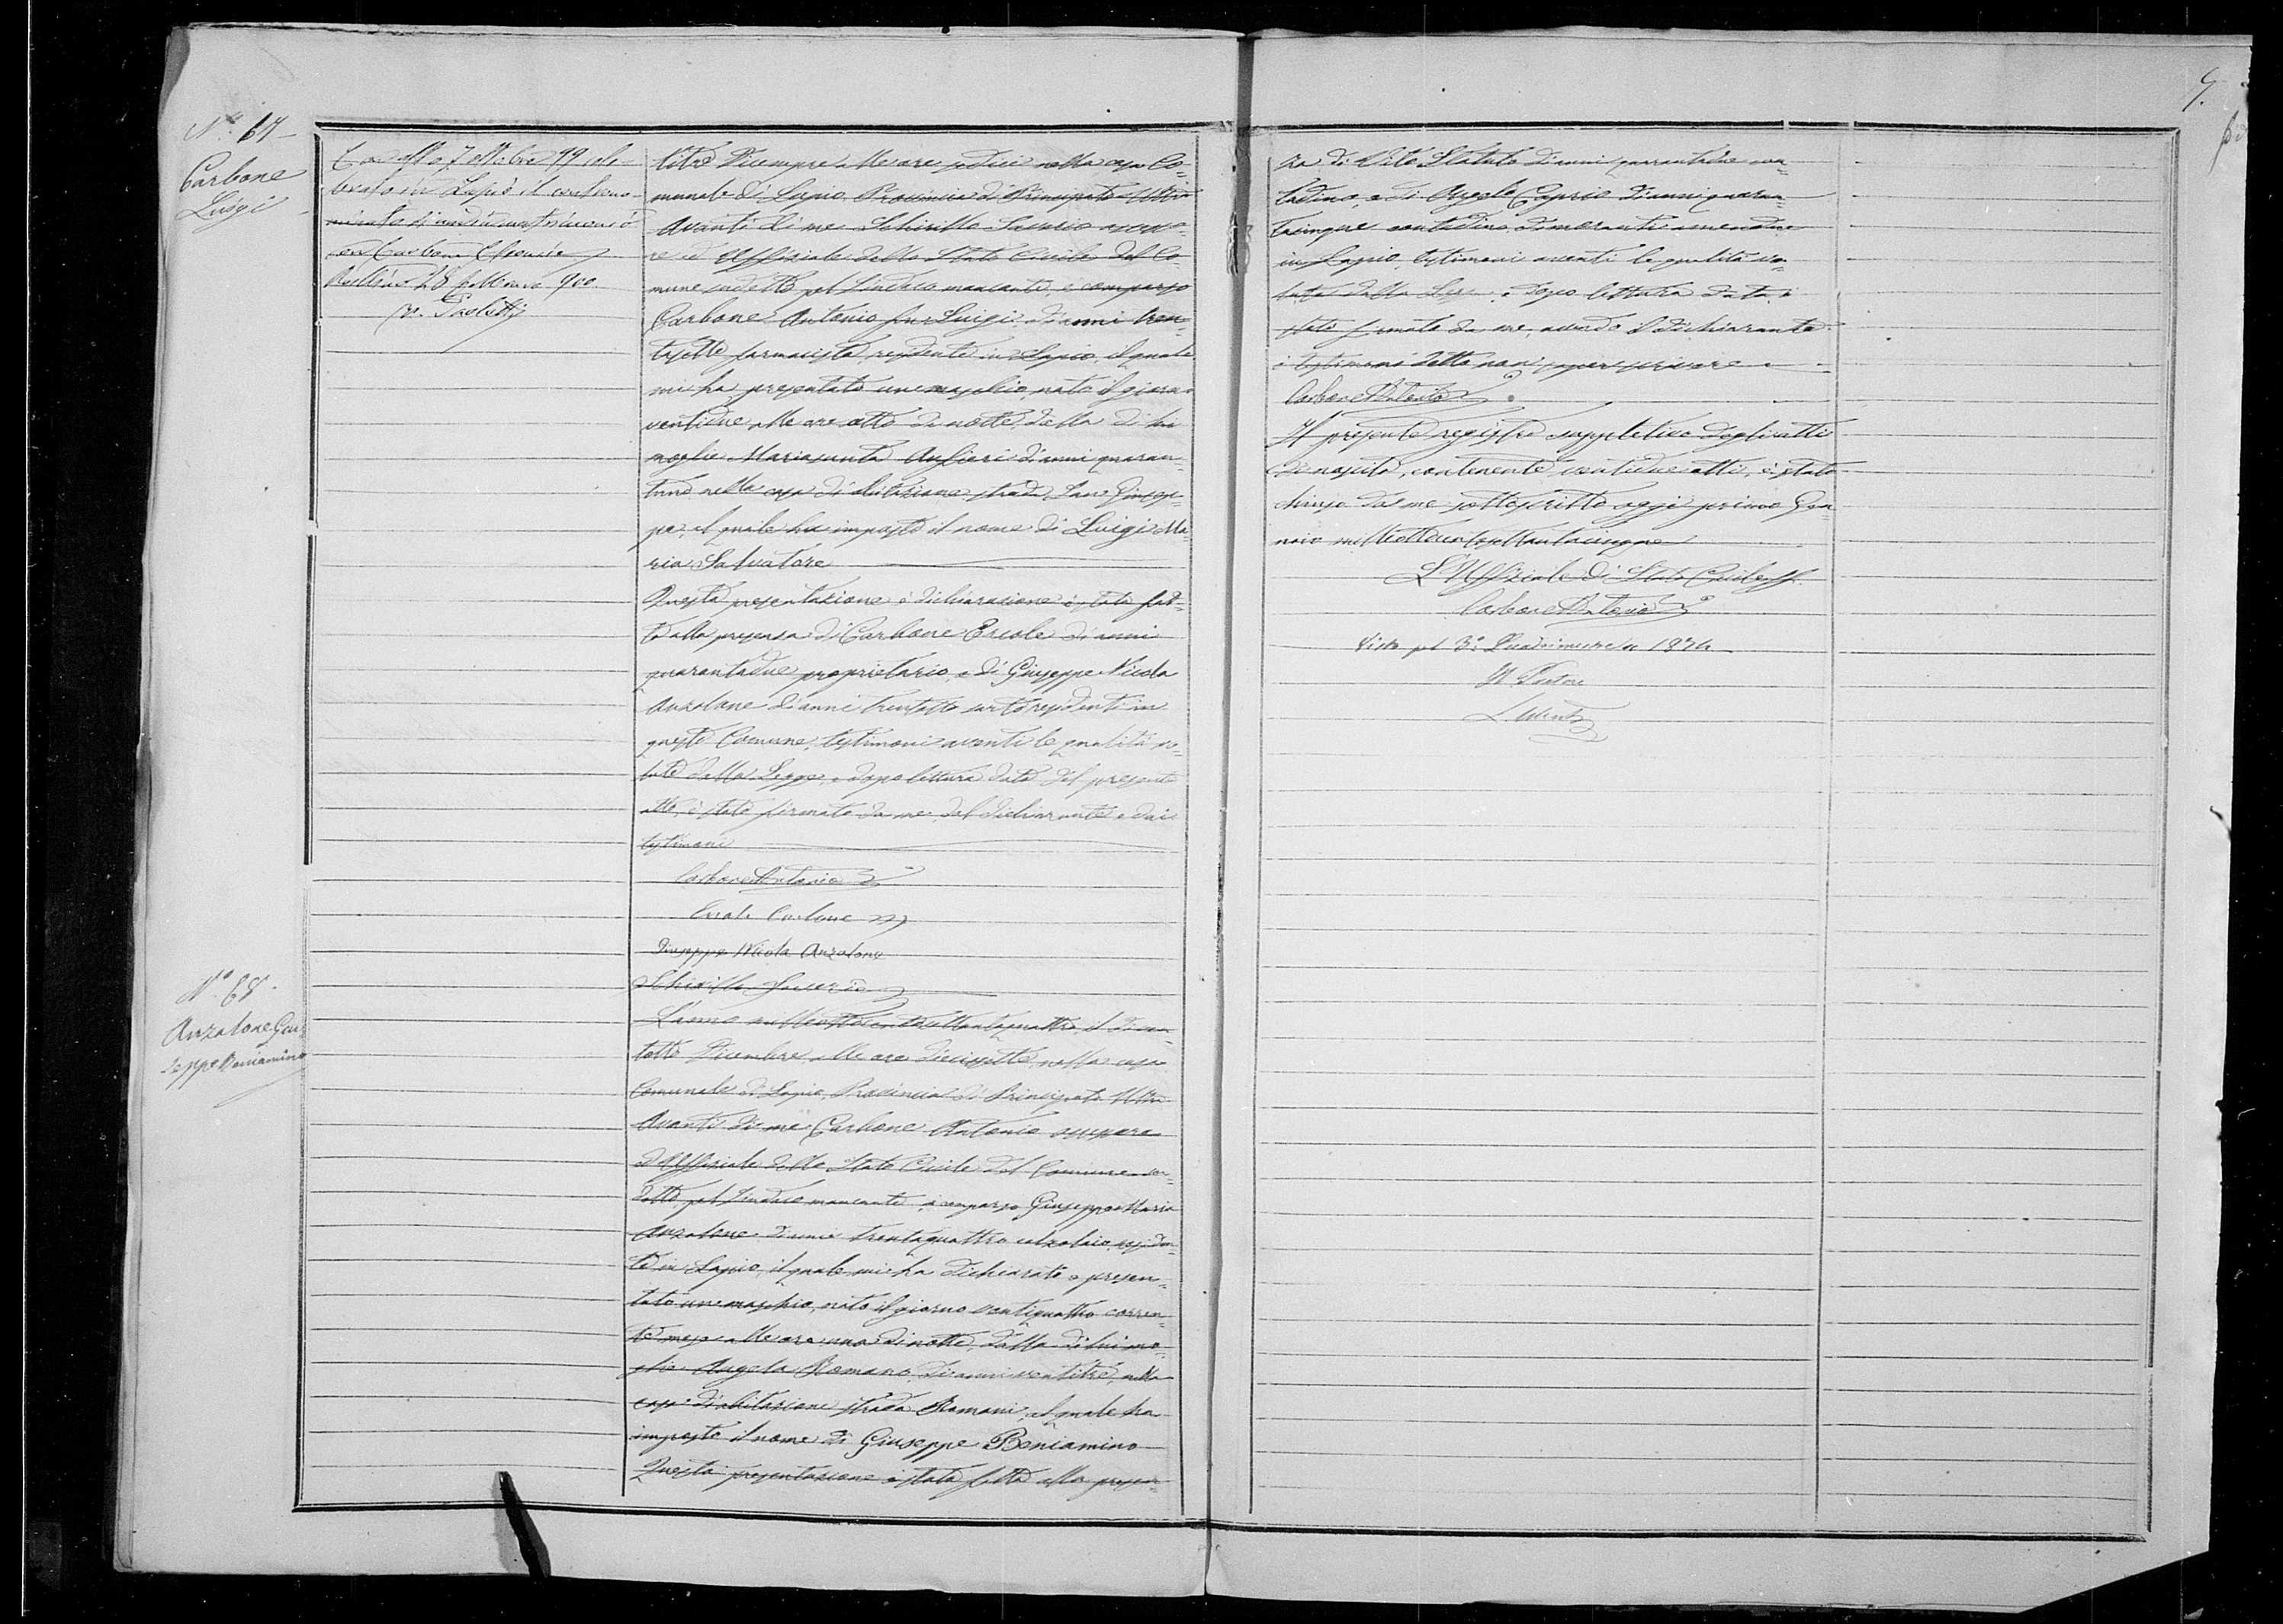 N.° 67
Carbone
Luigi
Con atto 7 ottobre 99 cele-
brato in Lapio il controno-
minato si unì in matrimonio
con Carbone
28 900
titrè Dicembre alle ore sedici nella casa Co-
munale di Lapio Provincia di Principato Ultra
Avanti di me Schirillo Saverio assesso-
re ed Uffiziale dello Stato Civile del Co-
mune sudetto pel Sindaco mancante, è comparso
Carbone Antonio fu Luigi, di anni tren-
tasette farmacista residente in Lapio, il quale
mi ha presentato un maschio nato il giorno
ventidue alle ore otto di notte dalla di lui
moglie Mariasunta Anfieri d'anni quaran-
tuno nella casa di abitazione strada San Giusep-
pe, al quale ha imposto il nome di Luigi Ma-
ria Salvatore
Questa presentazione e dichiarazione è stata fat-
ta alla presenza di Carbone Ercole di anni
quarantadue proprietario, e di Giuseppe Nicola
Anzalone di anni trentotto sarto residenti in
questo Comune, testimoni aventi le qualità vo-
lute dalla Legge, e dopo lettura data del presente
atto, è stato firmato da me, dal dichiarante e dai
testimoni
Carbone Antonio
Ercole Carbone
Giuseppe Nicola Anzalone
Schirillo Saverio
N.° 68
Anzalone Giu-
seppe Beniamino
L'anno milleottocentosettantaquattro, il dì ven-
totto Dicembre, alle ore diciassette, nella casa
Comunale di Lapio, Provincia di Principato Ultra
Avanti di me Carbone Antonio assessore
ed Uffiziale dello Stato Civile del Comune su-
detto, pel Sindaco mancante, è comparso Giuseppe Maria
Anzalone di anni trentaquattro calzolaio, residen-
te in Lapio, il quale mi ha dichiarato e presen-
tato un maschio, nato il giorno ventiquattro corren-
te mese alle ore una di notte, dalla di lui mo-
glie Angela Romano, di anni ventitrè, nella
casa di abitazione strada Romani, al quale ha
imposto il nome di Giuseppe Beniamino
Questa presentazione è stata fatta alla presen-
9.
za di Vito Statuto di anni quarantadue con-
tadino, e di Angelo Caprio di anni quaran-
tacinque contadino, dimoranti amendue
in Lapio, testimoni aventi le qualità vo-
lute dalla Legge, e dopo lettura data, è
stato firmato da me, avendo il dichiarante
e testimoni detto non saper scrivere
Carbone Antonio
Il presente registro suppletivo degli atti
di nascita, contenente ventidue atti, è stato
chiuso da me sottoscritto oggi primo Gen-
naio milleottocentosettantacinque
L'Uffiziale di Stato Civile ff.
Carbone Antonio
Visto pel 3.° Quadrimestre 1874
Il Pretore